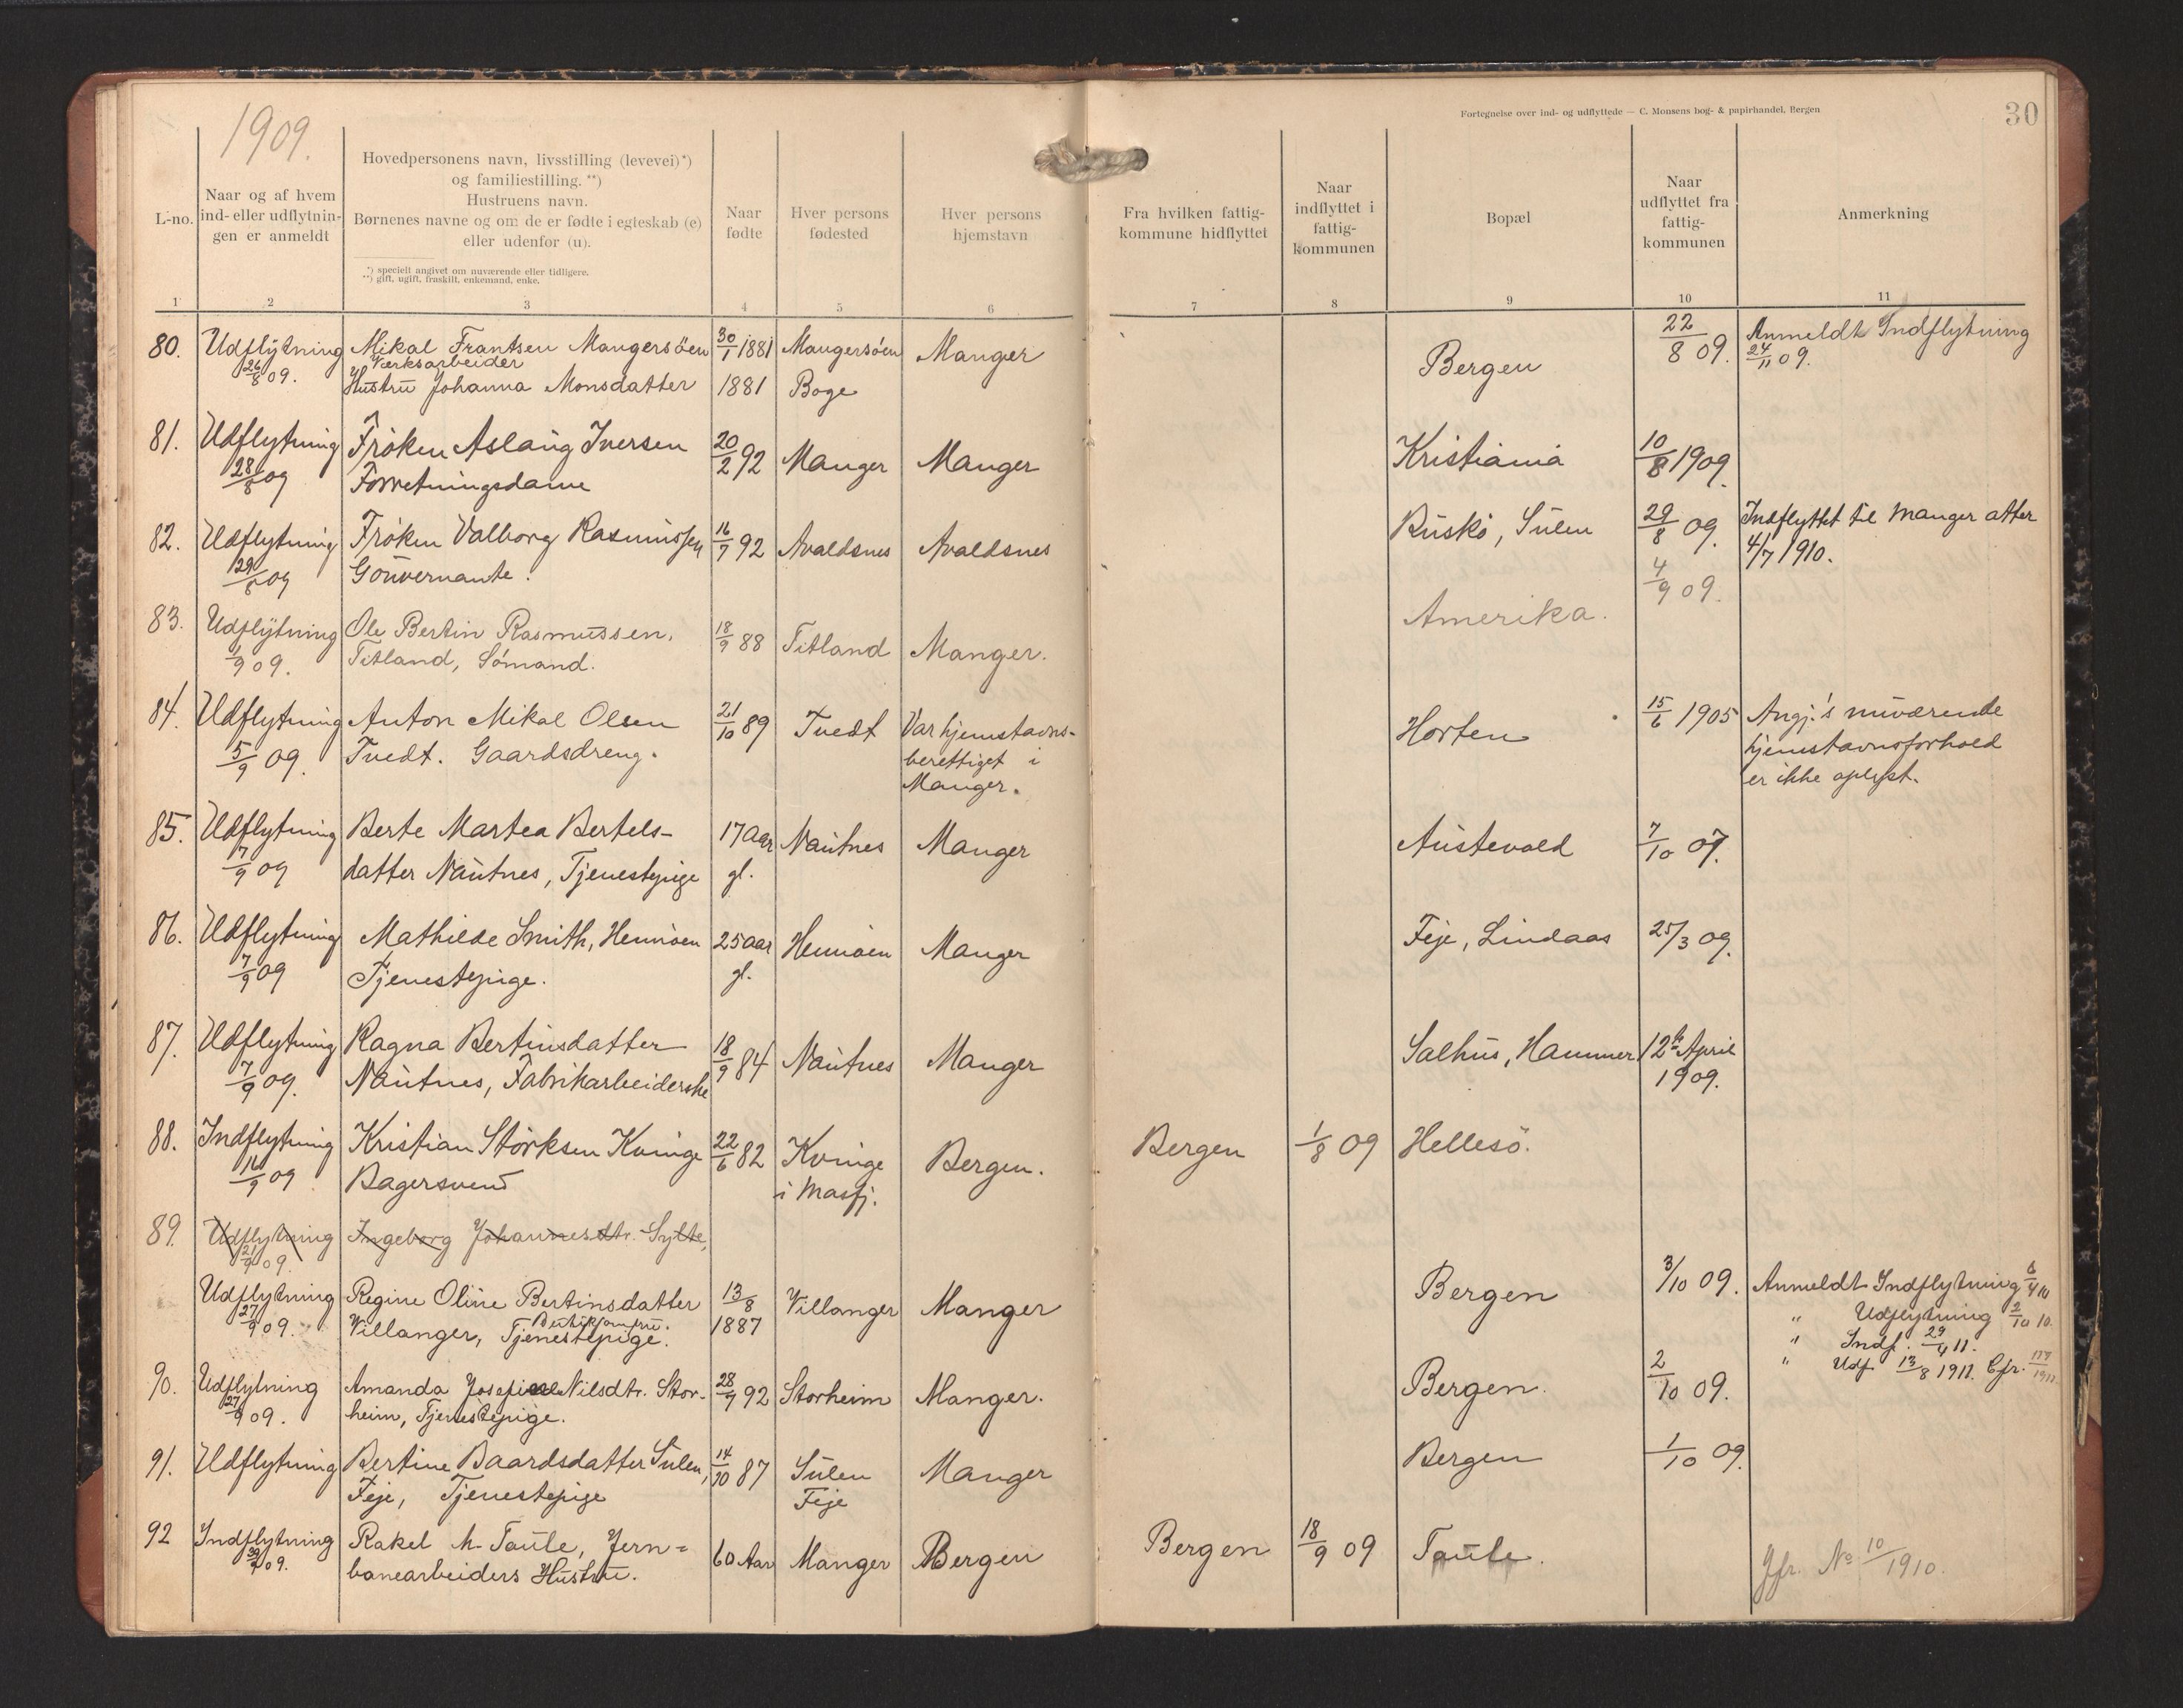 1909.
Fortegnelse over ind- og udflyttede — C. Monsens bog- & papirhandel, Bergen
30
L-no.
Naar og af hvem
ind- eller udflytnin-
gen er anmeldt
Hovedpersonens navn, livsstilling (levevei)*)
og familiestilling. **)
Hustruens navn.
Børnenes navne og om de er fødte i egteskab (e)
eller udenfor (u).
*) specielt angivet om nuværende eller tidligere.
**) gift, ugift, fraskilt, enkemand, enke.
Naar
fødte
Hver persons
fødested
Hver persons
hjemstavn
Fra hvilken fattig-
kommune hidflyttet
Naar
indflyttet i
fattig-
kommunen
Bopæl
Naar
udflyttet fra
fattig-
kommunen
Anmerkning
1 2 3 4 5 6 7 8 9 10 11
80. Udflytning Mikal Frantsen Mangersöen 30/1 1881 Mangersöen Manger Bergen 22/8 09. Anmeldt Indflytning
26/8 09. Værksarbeider 24/11 09.
Hustru Johanna Monsdatter 1881 Boge
81. Udflytning Frøken Aslaug Iversen 20/2 92 Manger Manger Kristiania 10/8 1909.
28/8 09 Forretningsdame
82. Udflytning Frøken Valborg Rasmussen 16/7 92 Avaldsnes Avaldsnes Ruskö, Sulen 29/8 09. Indflyttet til Manger atter
29/8 09 Gouvernante. 4/7 1910.
83. Udflytning Ole Bertin Rasmussen, 18/9 88 Titland Manger. Amerika. 4/9 09.
1/9 09. Titland, Sömand.
84. Udflytning Anton Mikal Olsen 21/10 89 Tvedt Var hjemstavns- Horten 15/6 1905 Angj.'s nuværende
5/9 09. Tvedt. Gaardsdreng. berettiget i hjemstavnsforhold
Manger. er ikke oplyst.
85. Udflytning Berte Martea Bertels- 17 Aar Nautnes Manger Austevold 7/10 07.
7/9 09 datter Nautnes, Tjenestepige gl.
86. Udflytning Mathilde Smith, Hennöen 25 aar Hennöen Manger Feje, Lindaas 25/3 09.
7/9 09 Tjenestepige. gl.
87. Udflytning Ragna Bertinsdatter 18/9 84 Nautnes Manger Salhus, Hammer 12te April
7/9 09. Nautnes, Fabrikarbeiderske 1909.
88. Indflytning Kristian Störksen Kvinge 22/6 82 Kvinge Bergen. Bergen 1/8 09 Hellesö.
16/9 09 Bagersvend i Masfj.
89. Udflytning Ingeborg Johannesdtr. Sylte,
21/9 09.
Udflytning Regine Oline Bertinsdatter 13/8 Villanger Manger Bergen 3/10 09. Anmeldt Indflytning 6/4 10
27/9 09. Villanger, Tjenestepige. 1887 " Udflytning 2/10 10.
" Indf. 29/4 11.
" Udf. 13/8 1911. Cfr.
90. Udflytning Amanda Josefine Nilsdtr. Stor- 28/9 92 Storheim Manger. Bergen. 2/10 09.
27/9 09. heim, Tjenestepige.
91. Udflytning Bertine Baardsdatter Sulen, 14/10 87 Sulen Manger Bergen 1/10 09.
Feje, Tjenestepige Feje
92 Indflytning Rakel M. Taule, Jern= 60 Aar Manger Bergen Bergen 18/9 09 Taule.
09. banearbeiders Hustru. Jfr. No 10/1910.